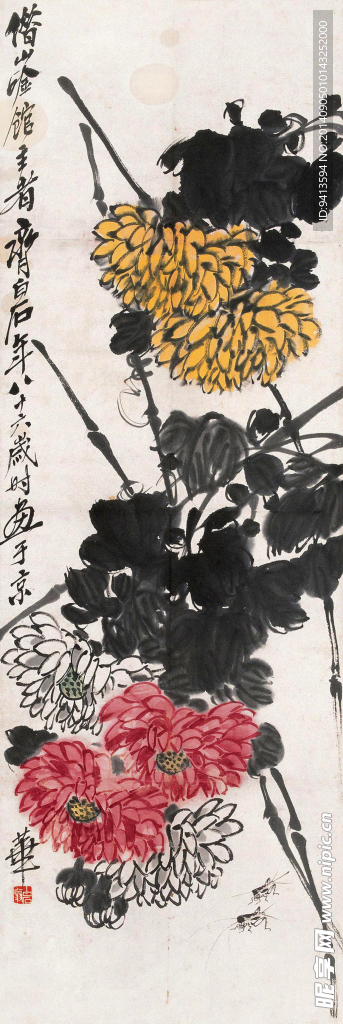 借山唫馆主者齊白石年八十六歲时画于京
華
ID:9413594 NO:20140905010143252000
昵享网 www.nipic.cn